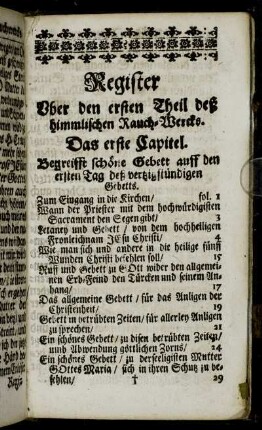 Register
Vber den ersten Theil deß
himmlischen Rauch-Wercks.
Das erste Capitel.
Begreifft schöne Gebett auff den
ersten Tag deß viertzigstündigen
Gebetts.
Zum Eingang in die Kirchen/ fol. 1
Wann der Priester mit dem hochwürdigsten
Sacrament den Segen gibt/ 3
Letaney und Gebett/ von dem hochheiligen
Fronleichnam JEsu Christi/ 4
Wie man sich und andere in die heilige fünff
Wunden Christi befehlen soll/ 15
Ruff und Gebett zu GOtt wider den allgemei-
nen Erb-Feind den Türcken und seinem An-
hang/ 17
Das allgemeine Gebett/ für das Anligen der
Christenheit/ 19
Gebett in betrübten Zeiten/ für allerley Anligen
zu sprechen/ 21
Ein schönes Gebett/ zu disen betrübten Zeiten/
unnd Abwendung göttlichen Zorns/ 24
Ein schönes Gebett/ zu der seeligisten Mutter
GOttes Maria/ sich in ihren Schutz zu be-
fehlen/ 29
†